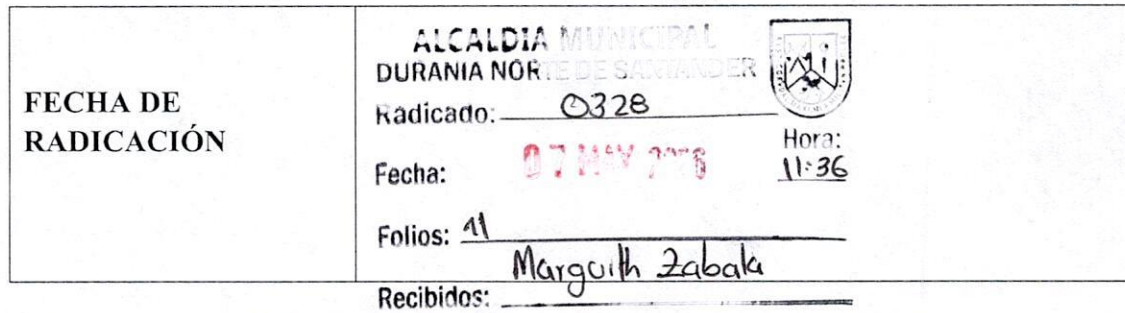 FECHA DE
RADICACIÓN
ALCALDIA MUNICIPAL
DURANIA NORTE DE SANTANDER
Radicado: 0328
Hora:
11:36
Fecha: 07 MAY
Folios: 11
Marguith Zabala
Recibidos: